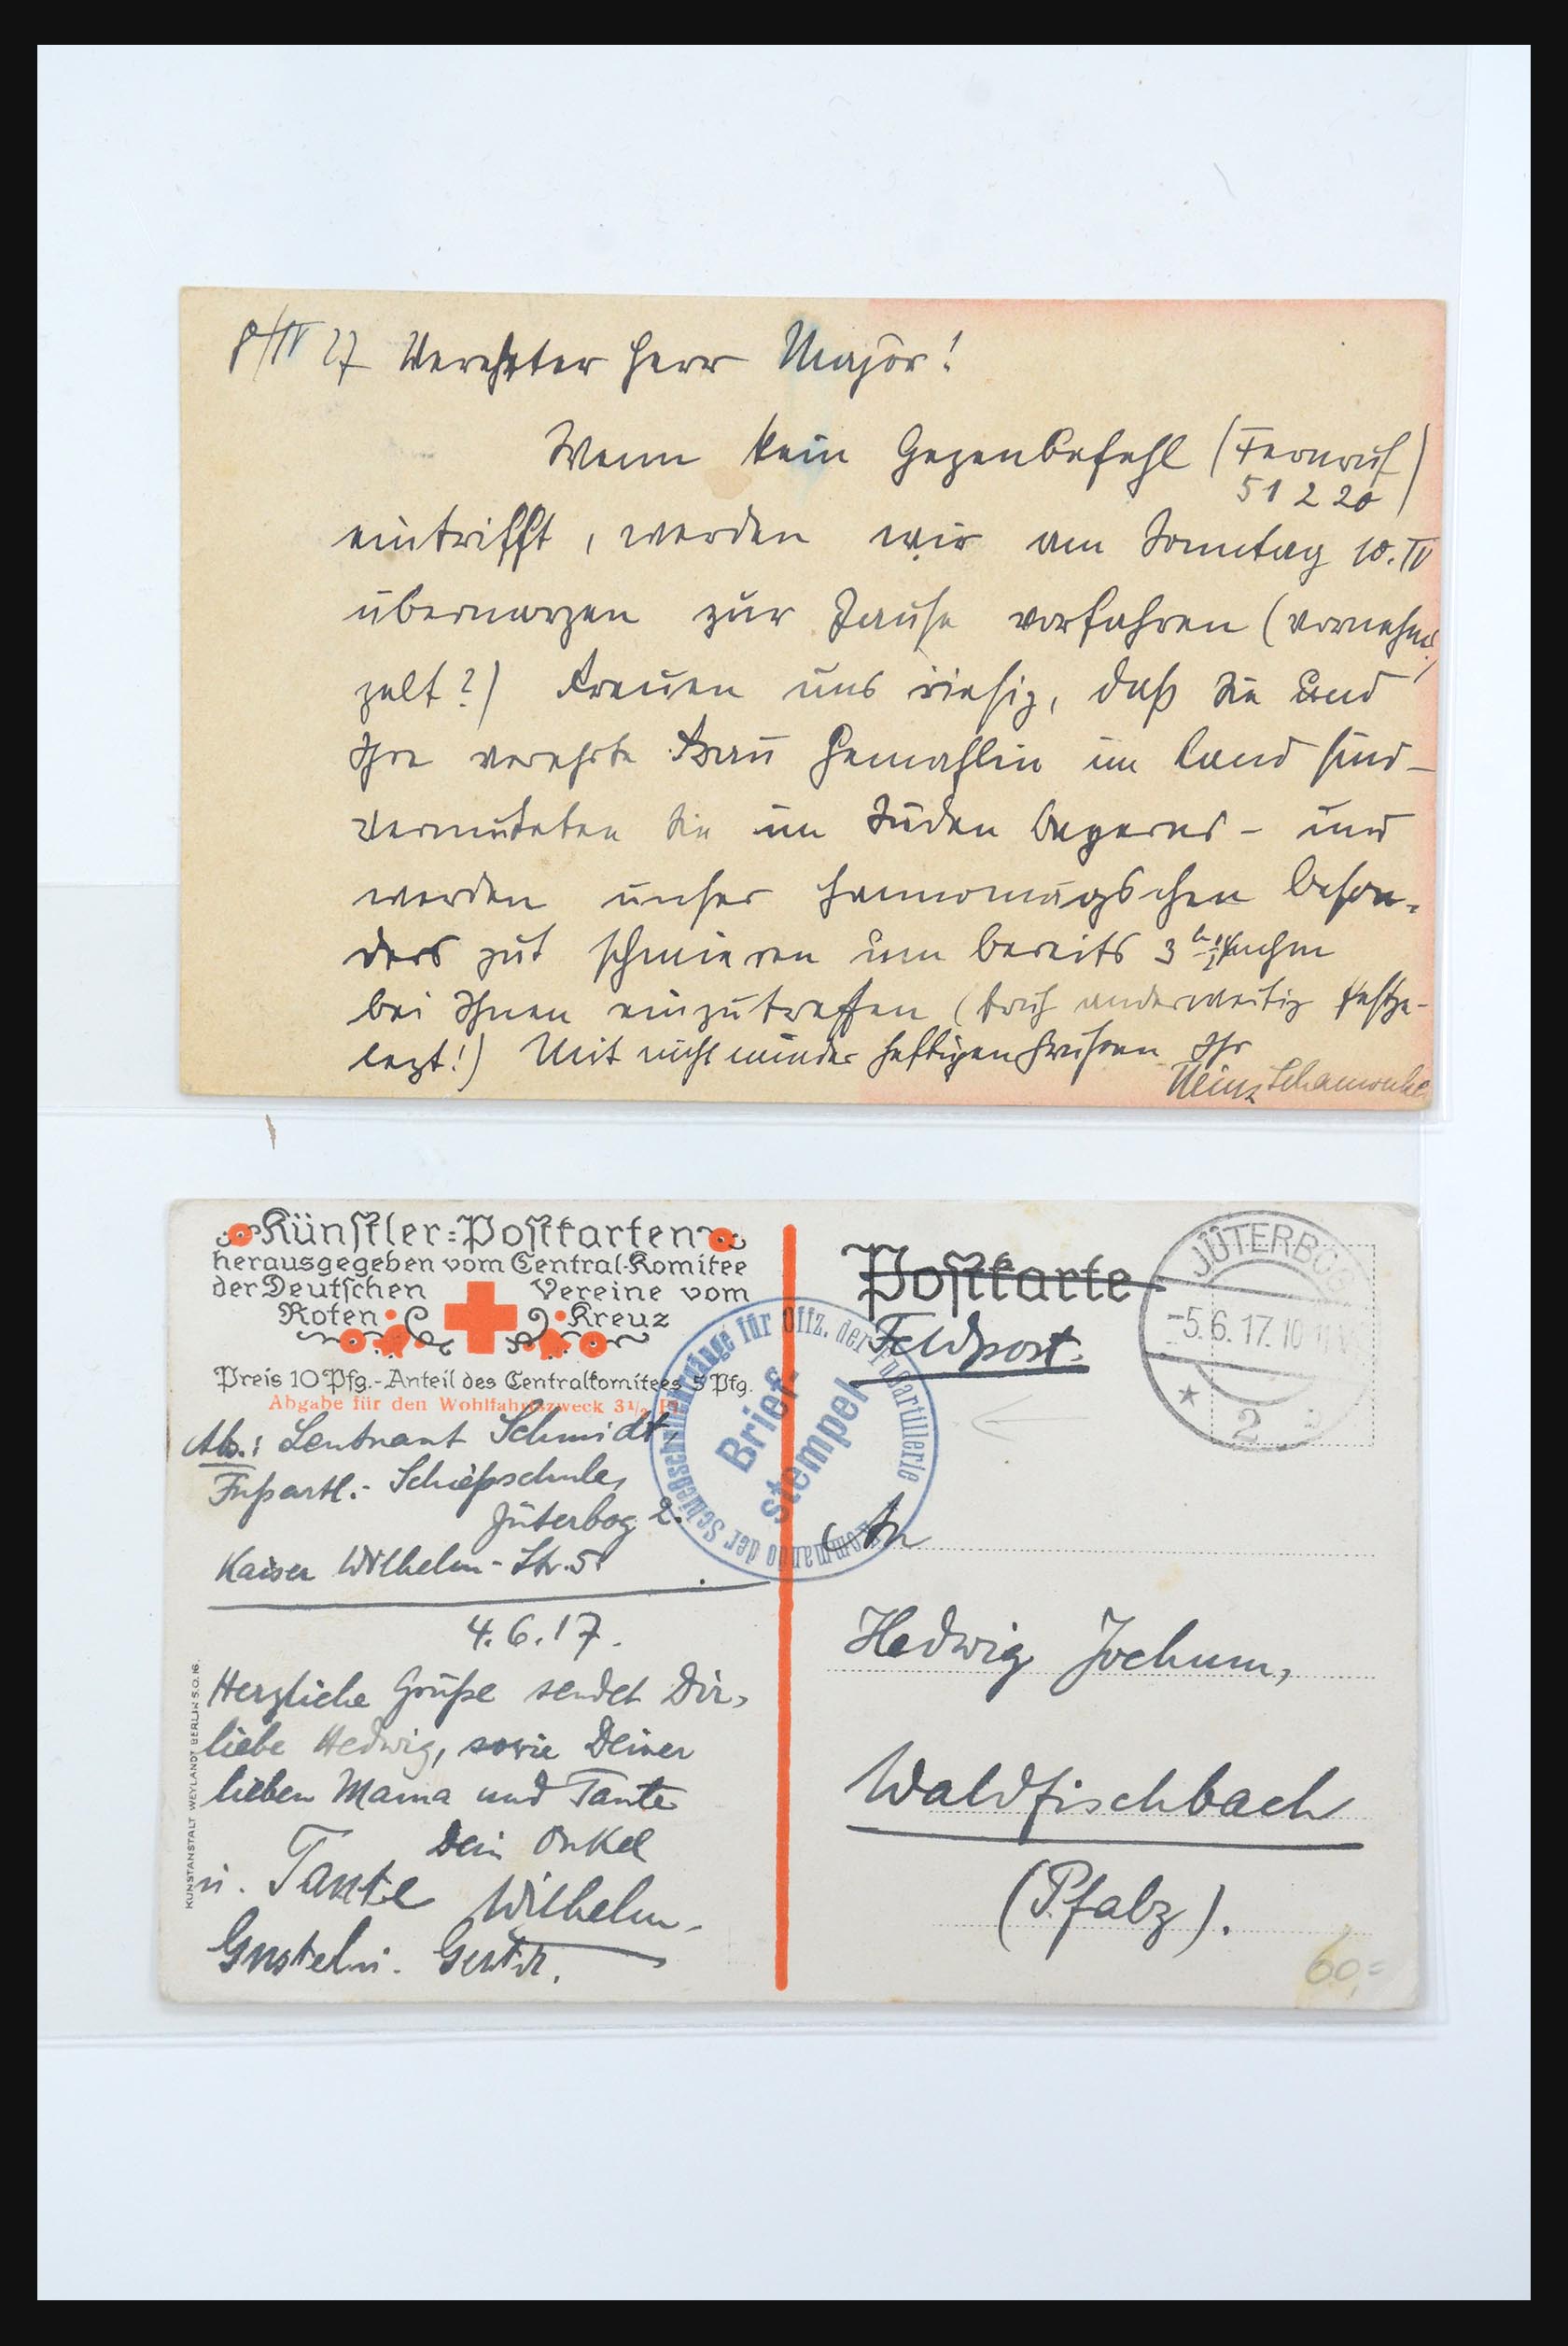 8/IV 27 Verehrter Herr Major!
Wenn kein Gegenbefehl (Fernruf
51220)
eintrifft, werden wir am Sonntag 10. IV
übermorgen zur Jause vorfahren (vornehm!
gelt?) Freuen uns riesig, daß Sie und
Ihre verehrte Frau Gemahlin im Land sind –
vermuteten Sie im Süden Bayerns – und
werden unser Hannomagschen beson-
ders gut schmieren um bereits 3h
bei Ihnen einzutreffen (doch anderweitig festge-
legt!) Mit nicht minder heftigen Grüßen Ihr
Heinz
Künstler=Postkarten
herausgegeben vom Central-Komitee
der Deutschen Vereine vom
Roten Kreuz
Preis 10 Pfg.-Anteil des Centralkomitees 5 Pfg.
Abgabe für den Wohlfahrtszweck 3½
Ab.: Leutnant Schmidt,
Fußartl.- Schießschule,
Jüterbog 2.
Kaiser Wilhelm-Str. 5
4.6.17.
Herzliche Grüße sendet Dir,
liebe Hedwig, sowie Deiner
lieben Mama und Tante
Dein Onkel
u. Tante Wilhelm.
Gustel u.
KUNSTANSTALT WEYLANDT BERLIN S.O.16.
Kommando der Schießschullehrgänge für Offz. der Fußartillerie
Brief-
stempel
Postkarte
Feldpost.
JÜTERBOG
-5.6.17.10-11V
* 2
An
Hedwig Jochum,
Waldfischbach
(Pfalz).
60,=